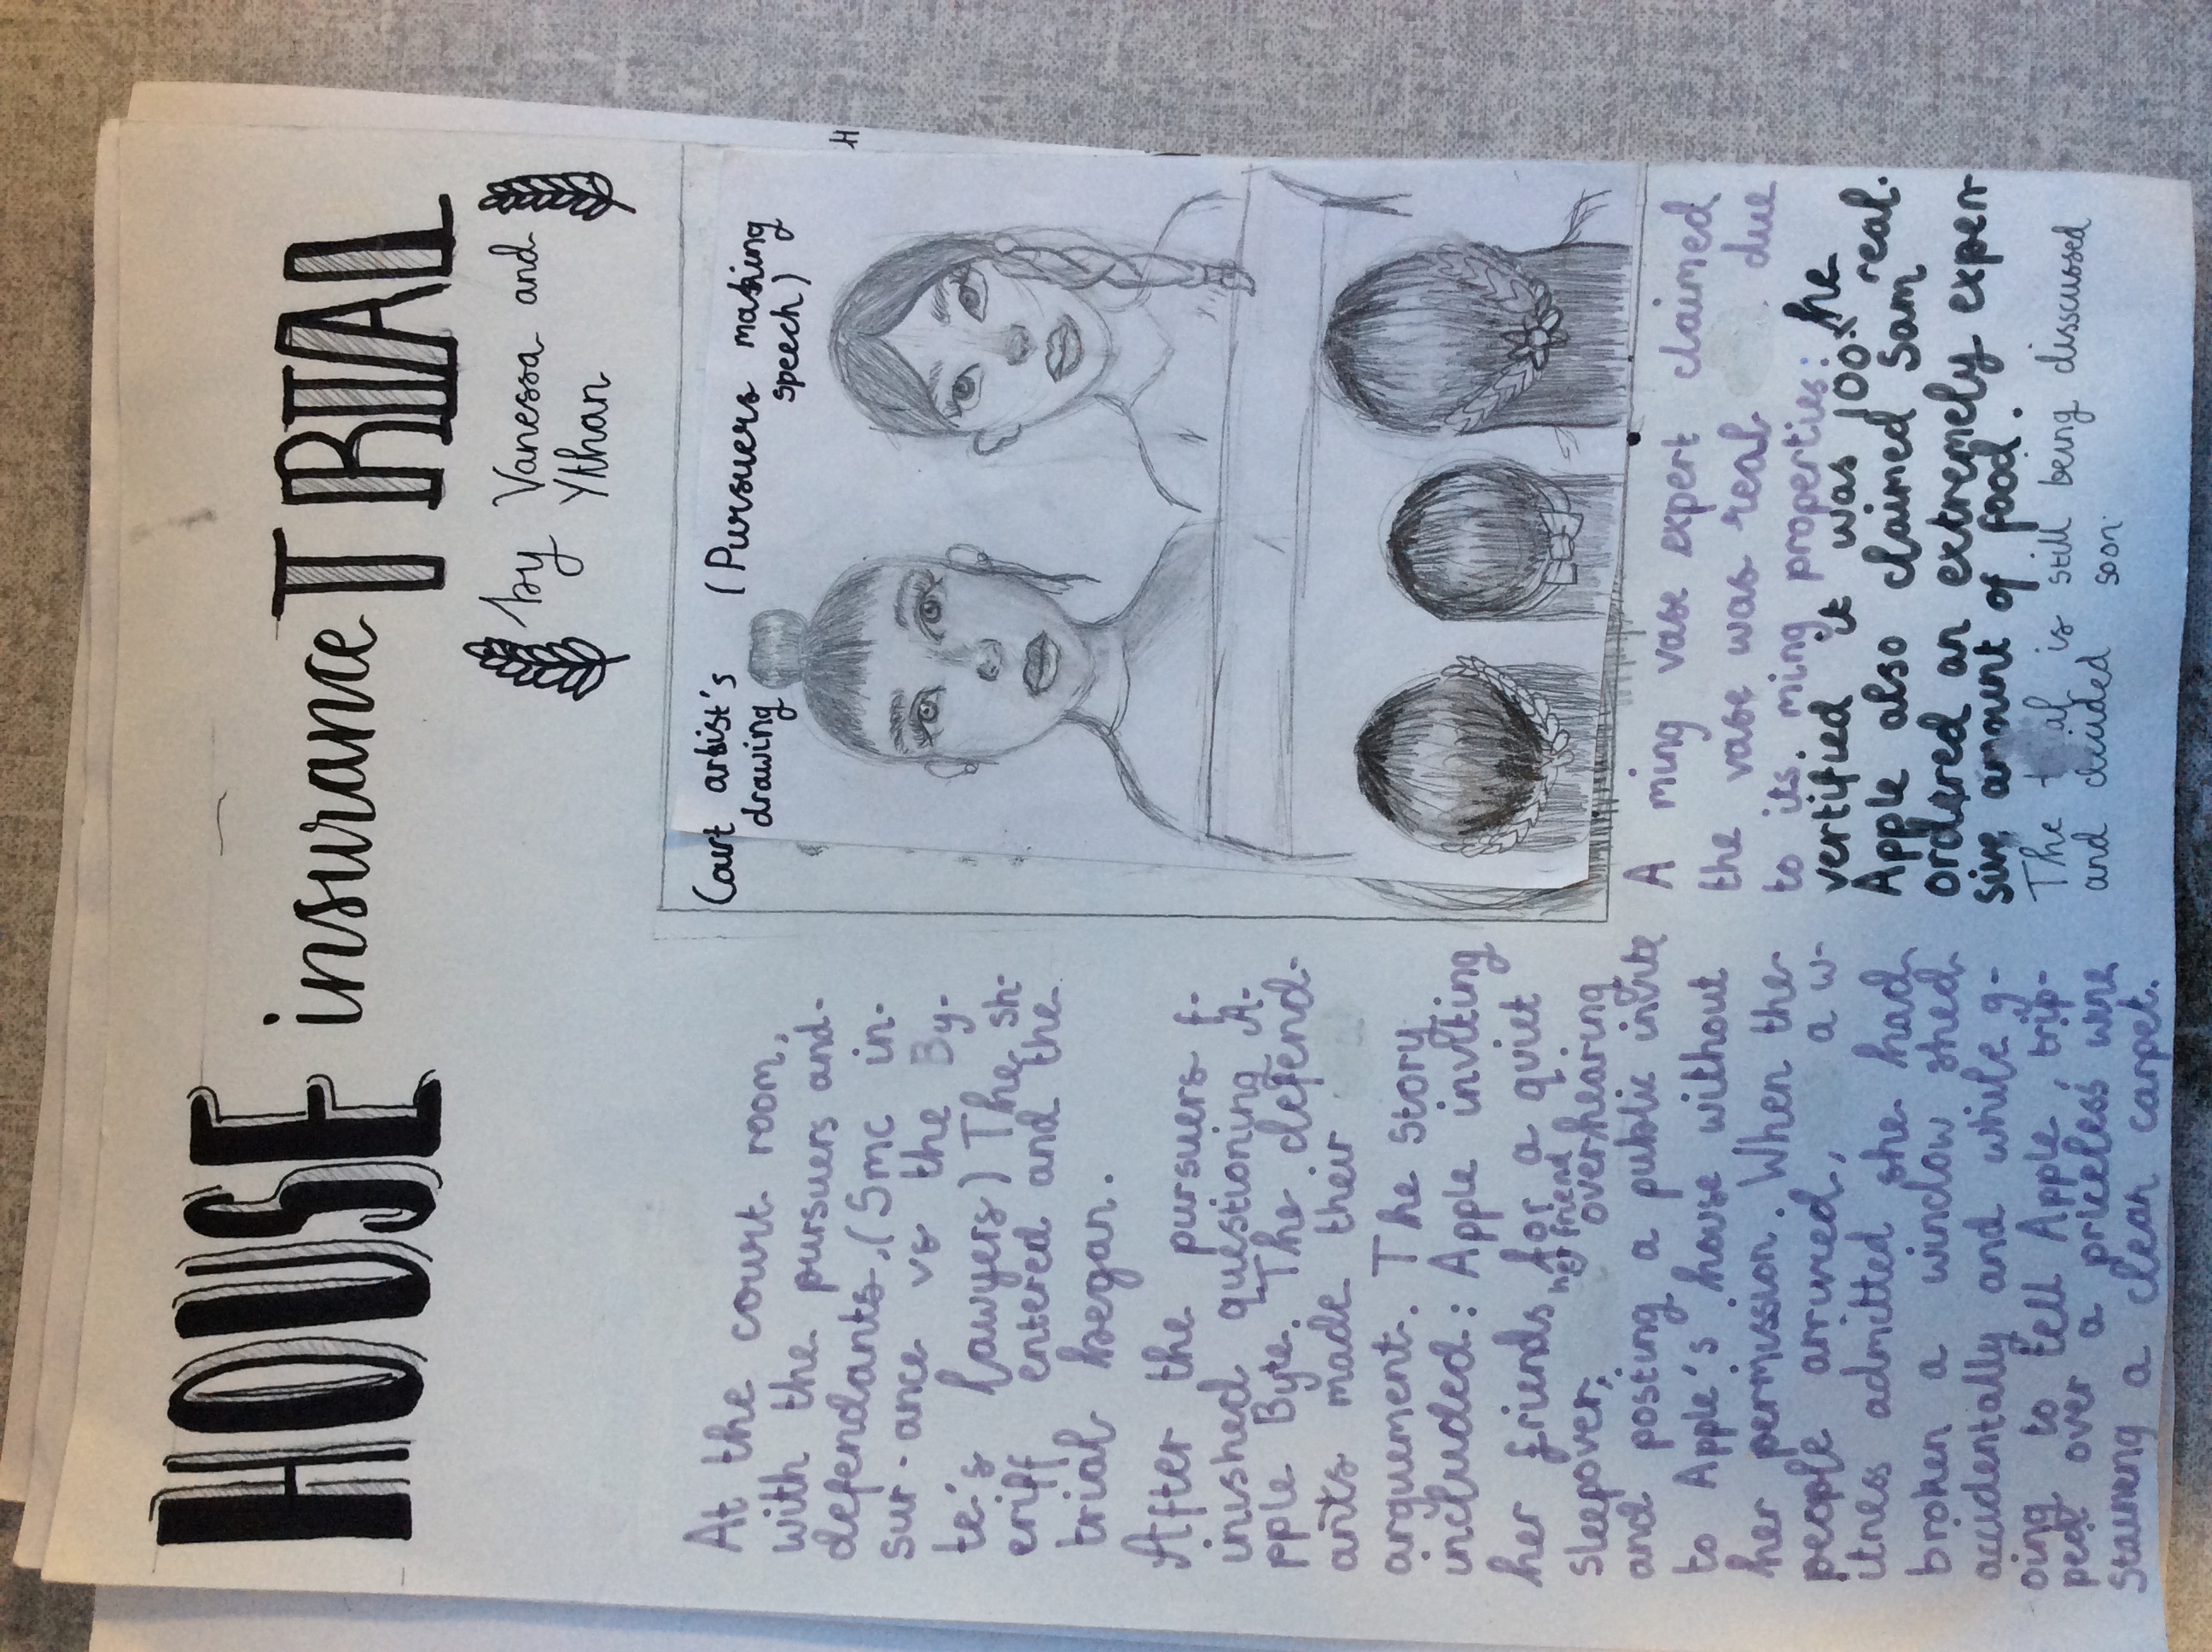 HOUSE insurance TRIAL
by Vanessa and
Ythan
At the court room,
with the pursuers and
defendants, (5mc in-
sur-ance vs the By-
te's lawyers) The sh-
eriff entered and the
trial began.
After the pursuers f-
inished questioning A-
pple Byte. The defend-
ants made their
arguement. The story
included: Apple inviting
her friends for a quiet
sleepover, her friend overhearing
and posting a public invite
to Apple's house without
her permission. When the
people arrived, a w-
itnes admitted she had
broken a window shed
accidentally and while g-
oing to tell Apple, trip-
ped over a priceless were
staining a clear carpet.
Court artist's (Pursuers making
drawing speech)
A ming vase expert claimed
the vase was real due
to its ming properties: he
vertified it was 100% real.
Apple also claimed Sam
ordered an extremely expen
sive amount of food.
The is still being disscussed
and decided soon.
H